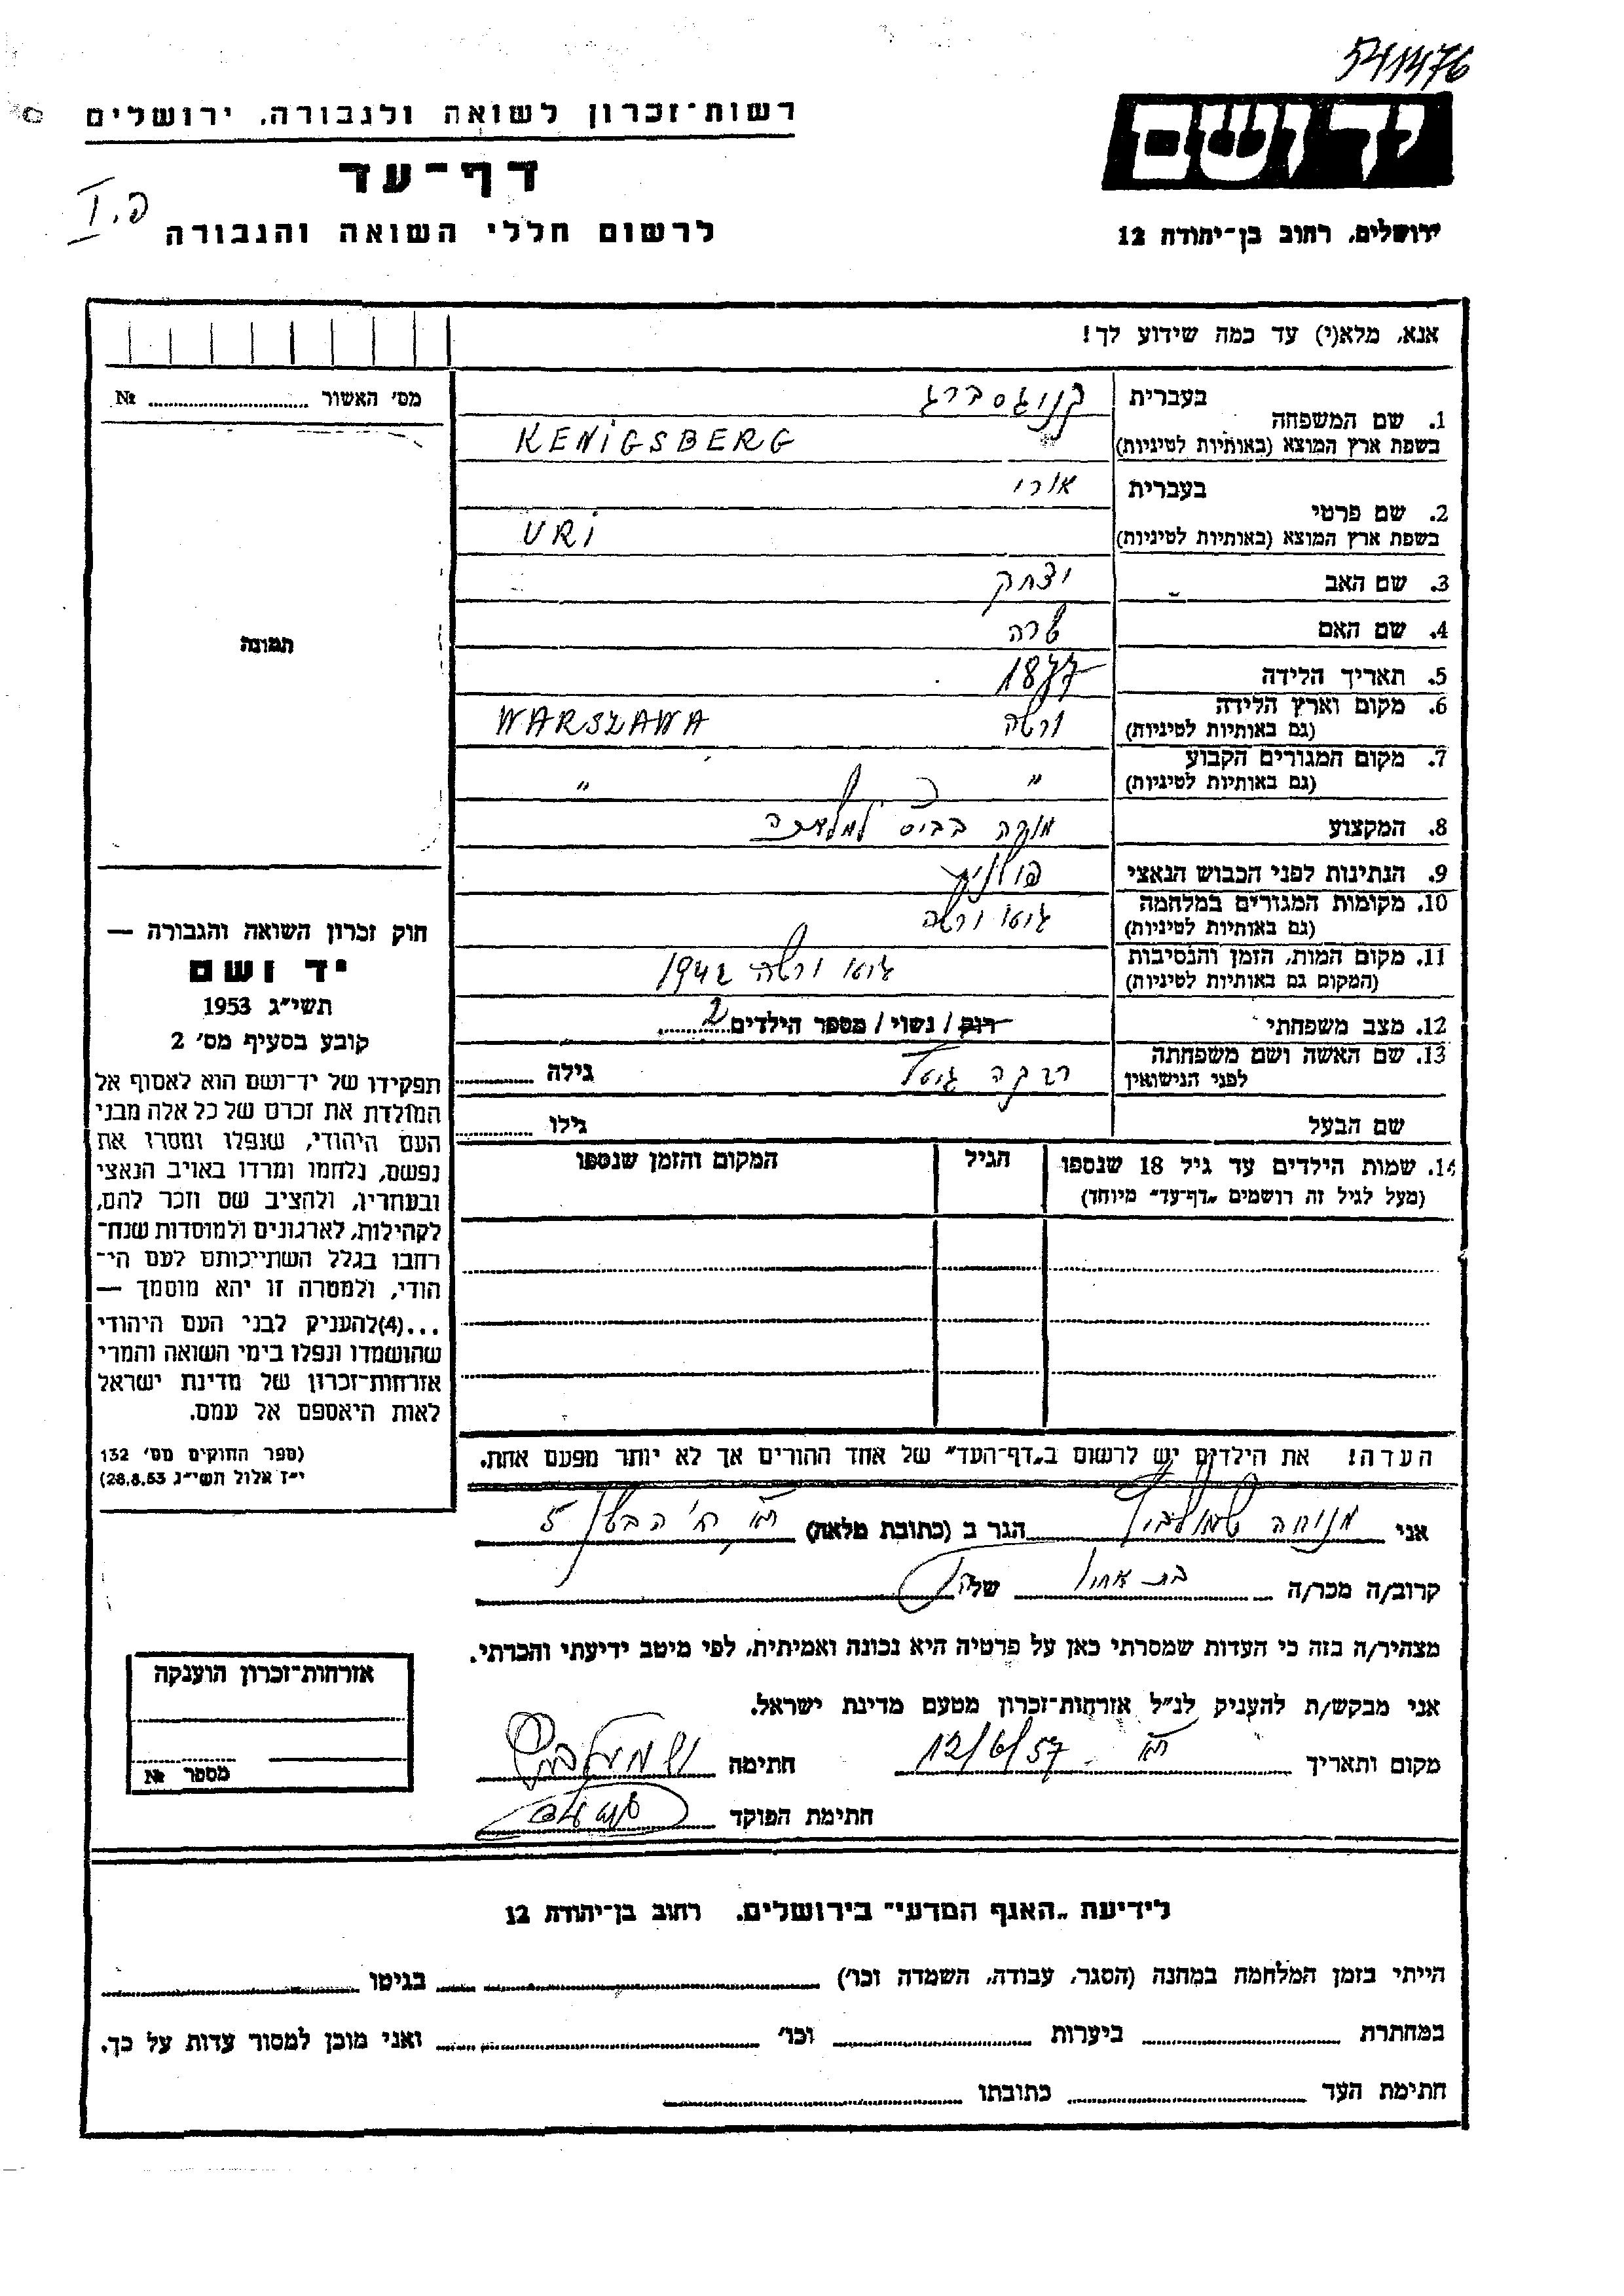 541476
רשות־זכרון לשואה ולגבורה, ירושלים
יד ושם
דף־עד
פ. I
לרשום חללי השואה והגבורה
ירושלים, רחוב בן־יהודה 12
אנא, מלא(י) עד כמה שידוע לך!
מס' האשור ........ №
תמונה
1. שם המשפחה
בעברית קניגסברג
בשפת ארץ המוצא (באותיות לטיניות) KENIGSBERG
2. שם פרטי
בעברית אורי
בשפת ארץ המוצא (באותיות לטיניות) URI
3. שם האב יצחק
4. שם האם שרה
5. תאריך הלידה 1877
6. מקום וארץ הלידה ורשה WARSZAWA
(גם באותיות לטיניות)
7. מקום המגורים הקבוע " "
(גם באותיות לטיניות)
8. המקצוע מורה בבי"ס למלאכה
9. הנתינות לפני הכבוש הנאצי פולנית
10. מקומות המגורים במלחמה גיטו ורשה
(גם באותיות לטיניות)
11. מקום המות, הזמן והנסיבות גיטו ורשה 1942
(המקום גם באותיות לטיניות)
12. מצב משפחתי רוק / נשוי / מספר הילדים 2
13. שם האשה ושם משפחתה רבקה גילה ........
לפני הנישואין
שם הבעל גילו ........
14. שמות הילדים עד גיל 18 שנספו הגיל המקום והזמן שנספו
(מעל לגיל זה רושמים "דף־עד" מיוחד)
הערה! את הילדים יש לרשום ב"דף־העד" של אחד ההורים אך לא יותר מפעם אחת.
חוק זכרון השואה והגבורה —
יד ושם
תשי"ג 1953
קובע בסעיף מס' 2
תפקידו של יד־ושם הוא לאסוף אל
המולדת את זכרם של כל אלה מבני
העם היהודי, שנפלו ומסרו את
נפשם, נלחמו ומרדו באויב הנאצי
ובעוזריו, ולהציב שם וזכר להם,
לקהילות, לארגונים ולמוסדות שנח־
רבו בגלל השתייכותם לעם הי־
הודי, ולמטרה זו יהא מוסמך —
...(4)להעניק לבני העם היהודי
שהושמדו ונפלו בימי השואה והמרי
אזרחות־זכרון של מדינת ישראל
לאות היאספם אל עמם.
(ספר החוקים מס' 132
י"ז אלול תשי"ג 28.8.53)
אני מנוחה הגר ב (כתובת מלאה) ת"א רח' 5
קרוב/ה מכר/ה בת אחיו של
מצהיר/ה בזה כי העדות שמסרתי כאן על פרטיה היא נכונה ואמיתית, לפי מיטב ידיעתי והכרתי.
אני מבקש/ת להעניק לנ"ל אזרחות־זכרון מטעם מדינת ישראל.
מקום ותאריך ת"א 12/6/57 חתימה
חתימת הפוקד
אזרחות־זכרון הוענקה
מספר №
לידיעת "האגף המדעי" בירושלים, רחוב בן־יהודה 12
הייתי בזמן המלחמה במחנה (הסגר, עבודה, השמדה וכו') ........ בגיטו ........
במחתרת ........ ביערות ........ וכו' ........ ואני מוכן למסור עדות על כך.
חתימת העד ........ כתובתו ........